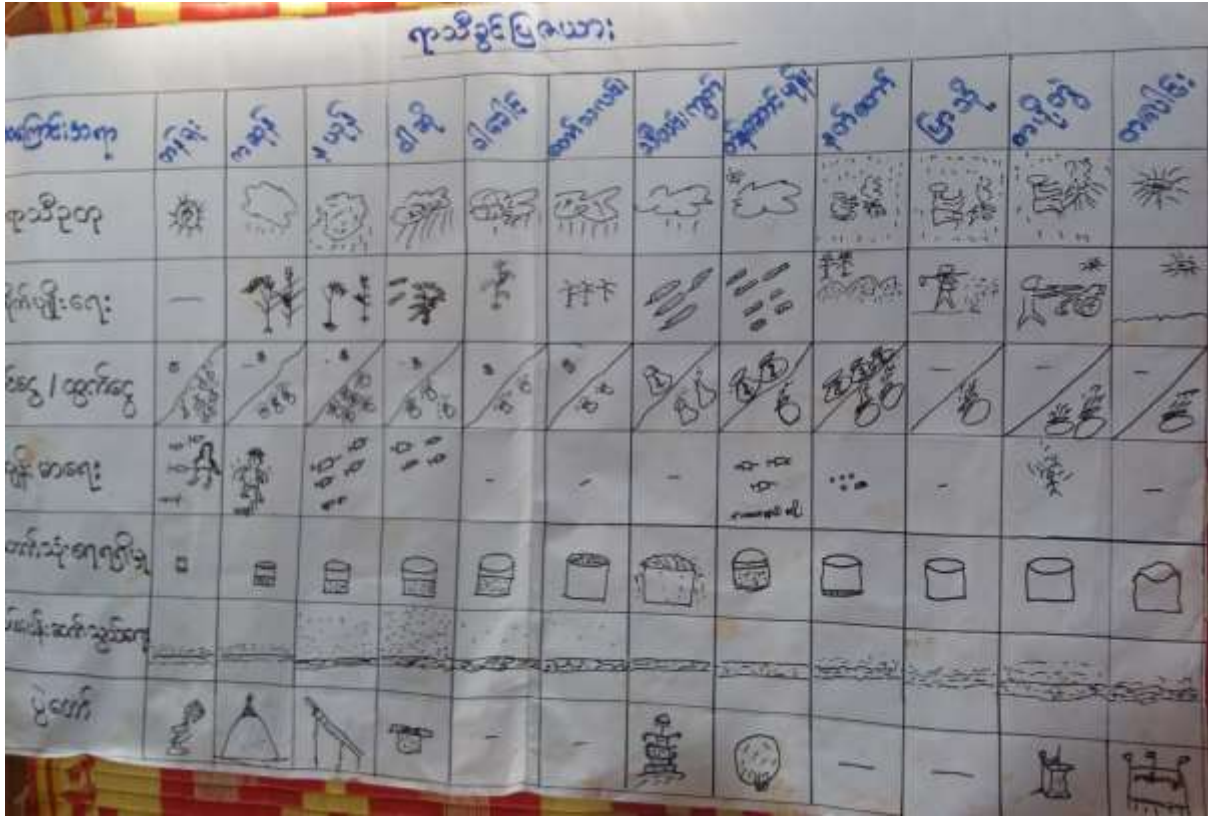 ရာသီခွင်ပြဇယား
အကြောင်းအရာ တန်ခူး ကဆုန် နယုန် ဝါဆို ဝါခေါင် တော်သလင်း သီတင်းကျွတ် တန်ဆောင်မုန်း နတ်တော် ပြာသို တပို့တွဲ တပေါင်း
ရာသီဥတု
စိုက်ပျိုးရေး
ဝင်ငွေ / ထွက်ငွေ
ကျန်းမာရေး
သောက်သုံးရေရရှိမှု
လမ်းပန်းဆက်သွယ်ရေး
ပွဲတော်